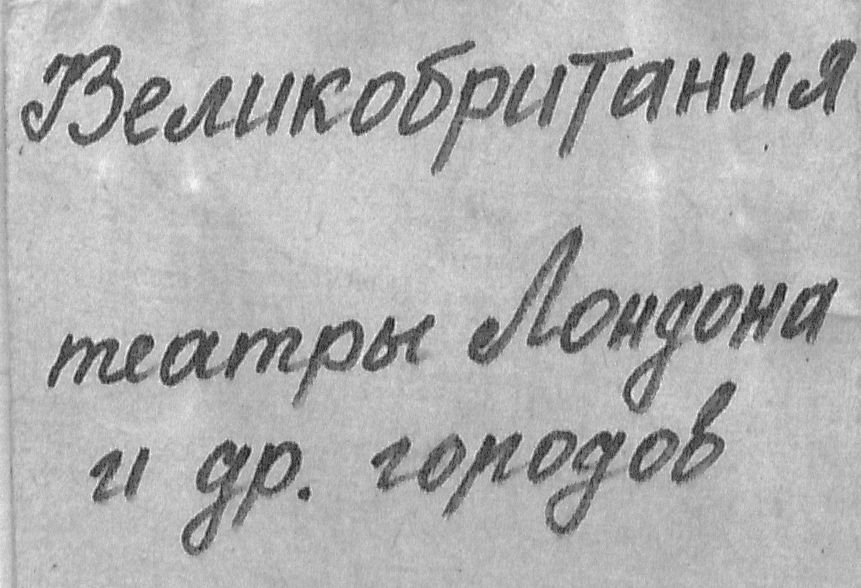 Великобритания
театры Лондона
и др. городов